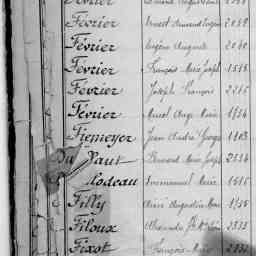 Février
Février Ernest Armand Eugène 2059
Février Eugène Auguste 2060
Février François Marie Joseph 1516
Février Joseph François 2215
Février Marcel Ange Marie 1954
Fiemeyer Jean André Georges 1103
Du Haut Bernard Marie Joseph 2534
lodeau Emmanuel Marie 1615
Filly Aimé Augustin Marie 1936
Filoux Alexandre 2331
Fixot François Marie